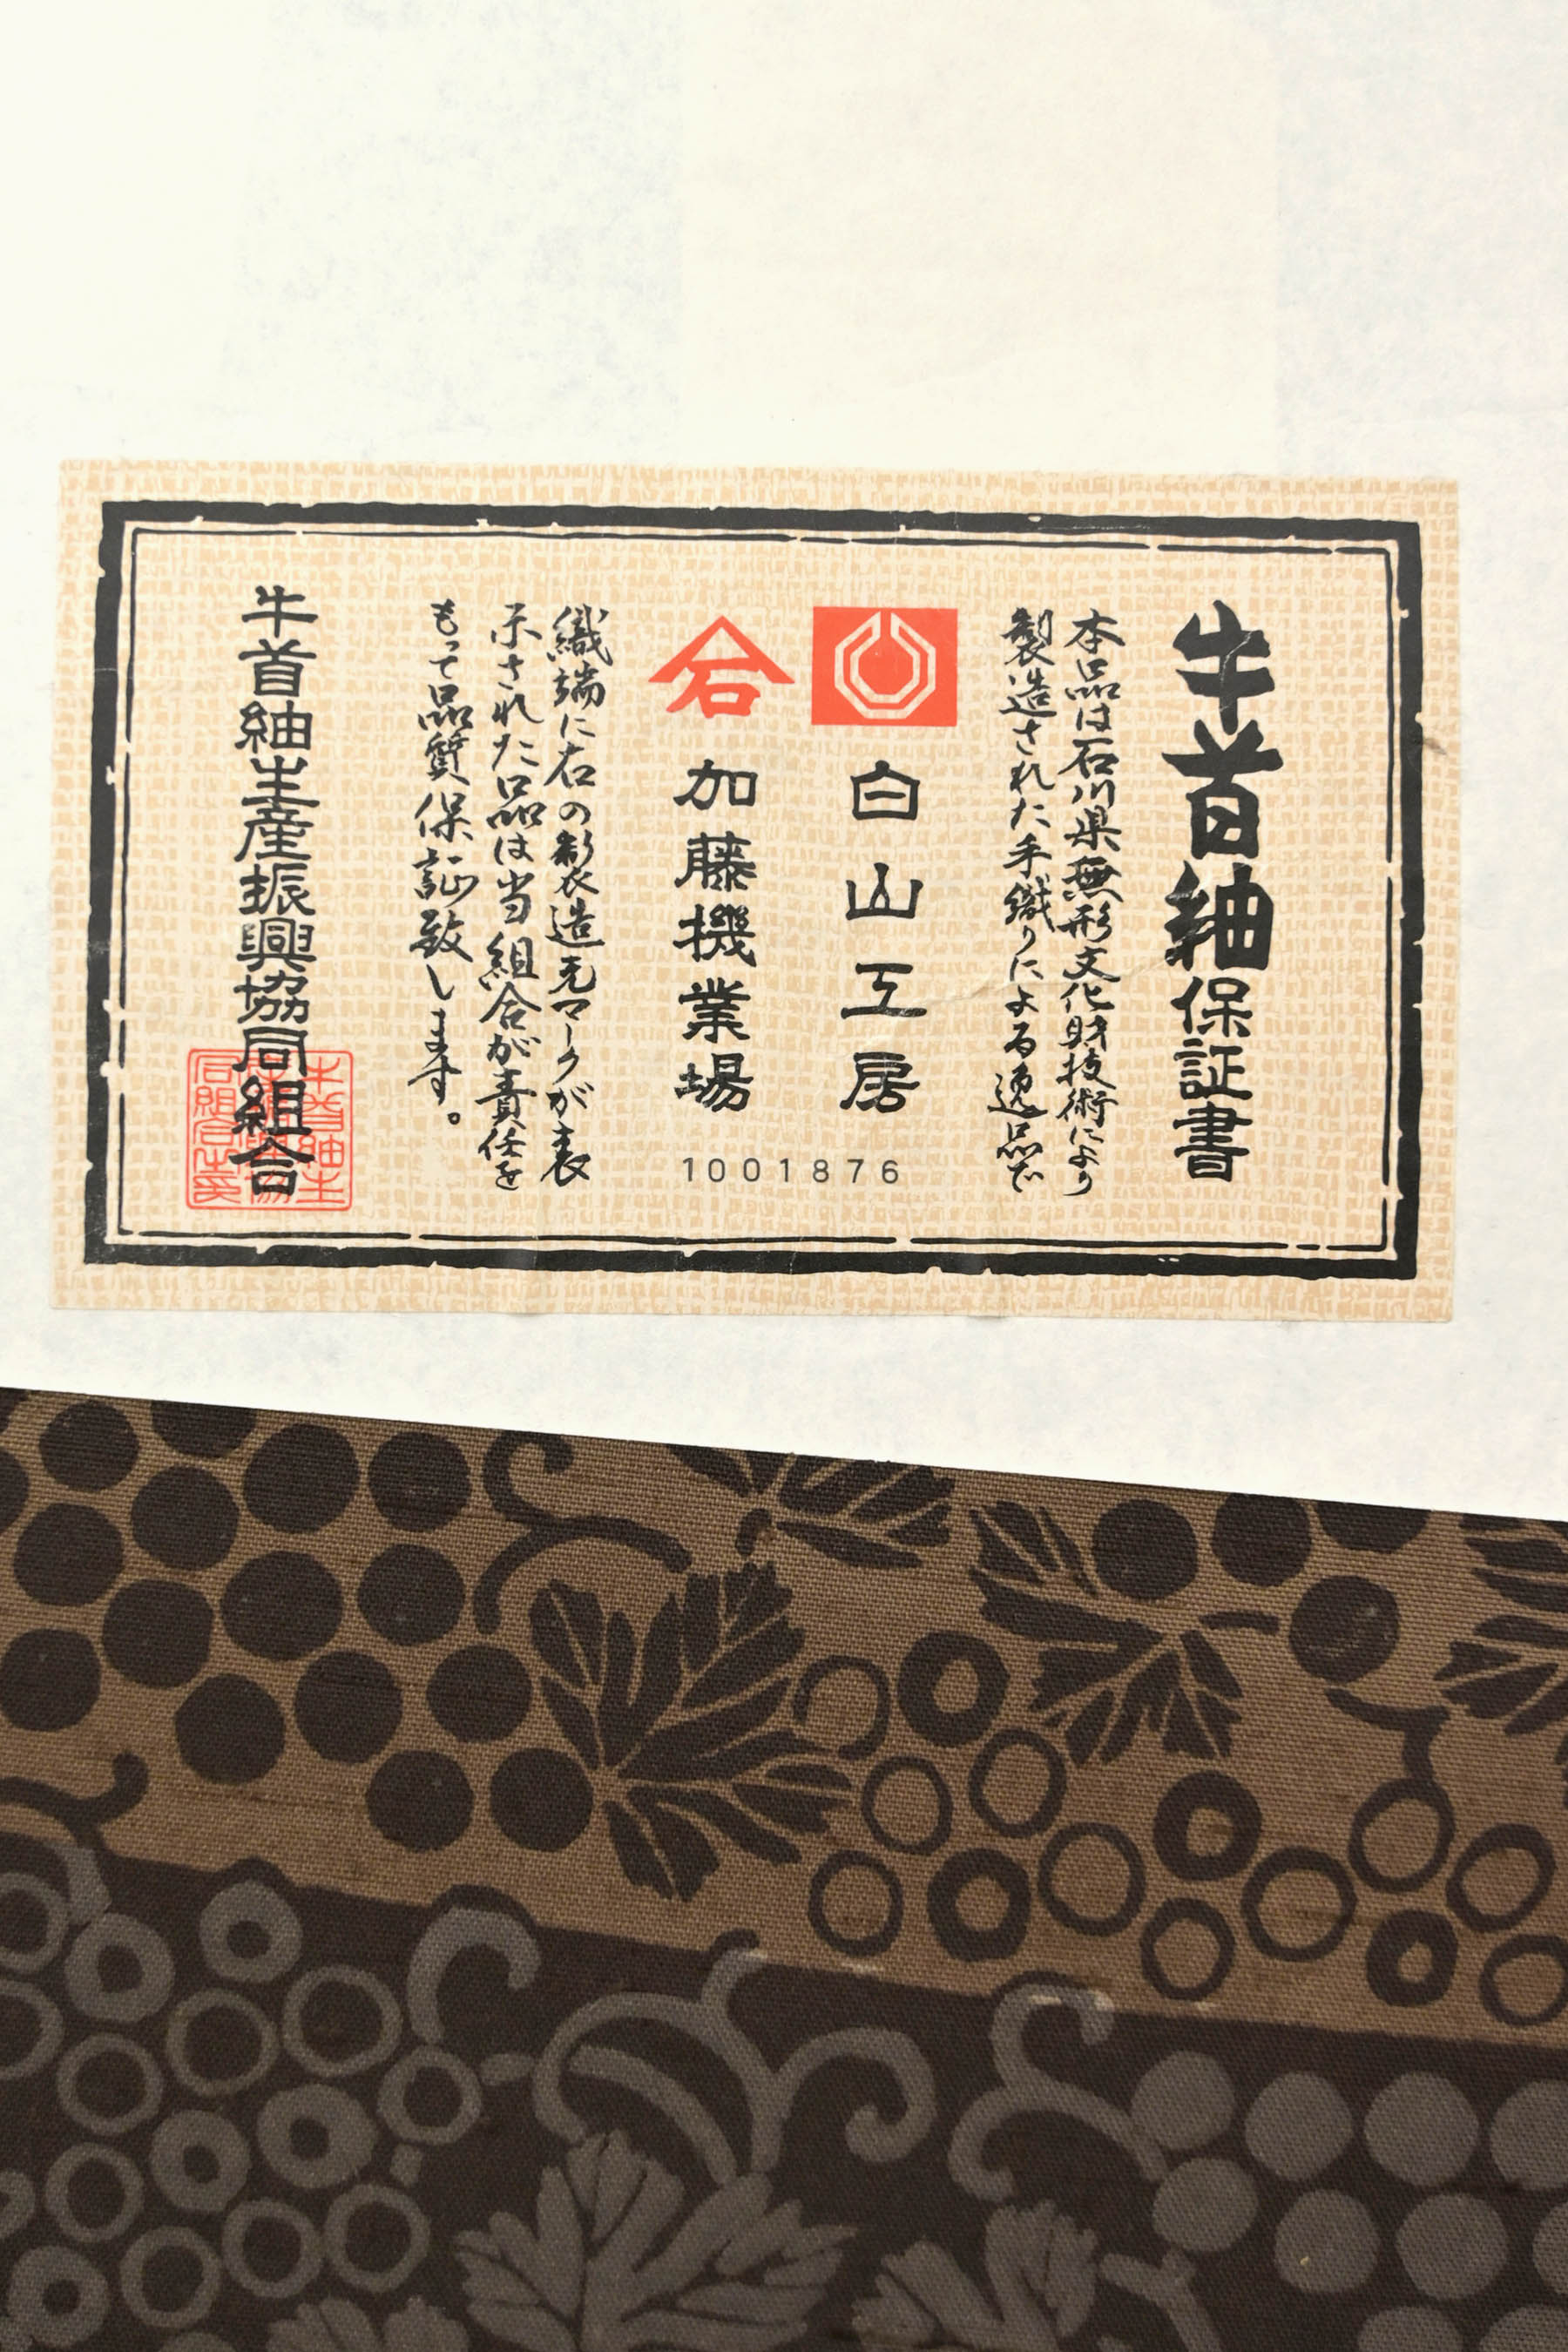 牛首紬保証書
本品は石川県無形文化財技術により
製造された手織りによる逸品で
白山工房
石
加藤機業場
1001876
織端に右の製造元マークが表
示された品は当組合が責任を
もって品質保証致します。
牛首紬生産振興協同組合